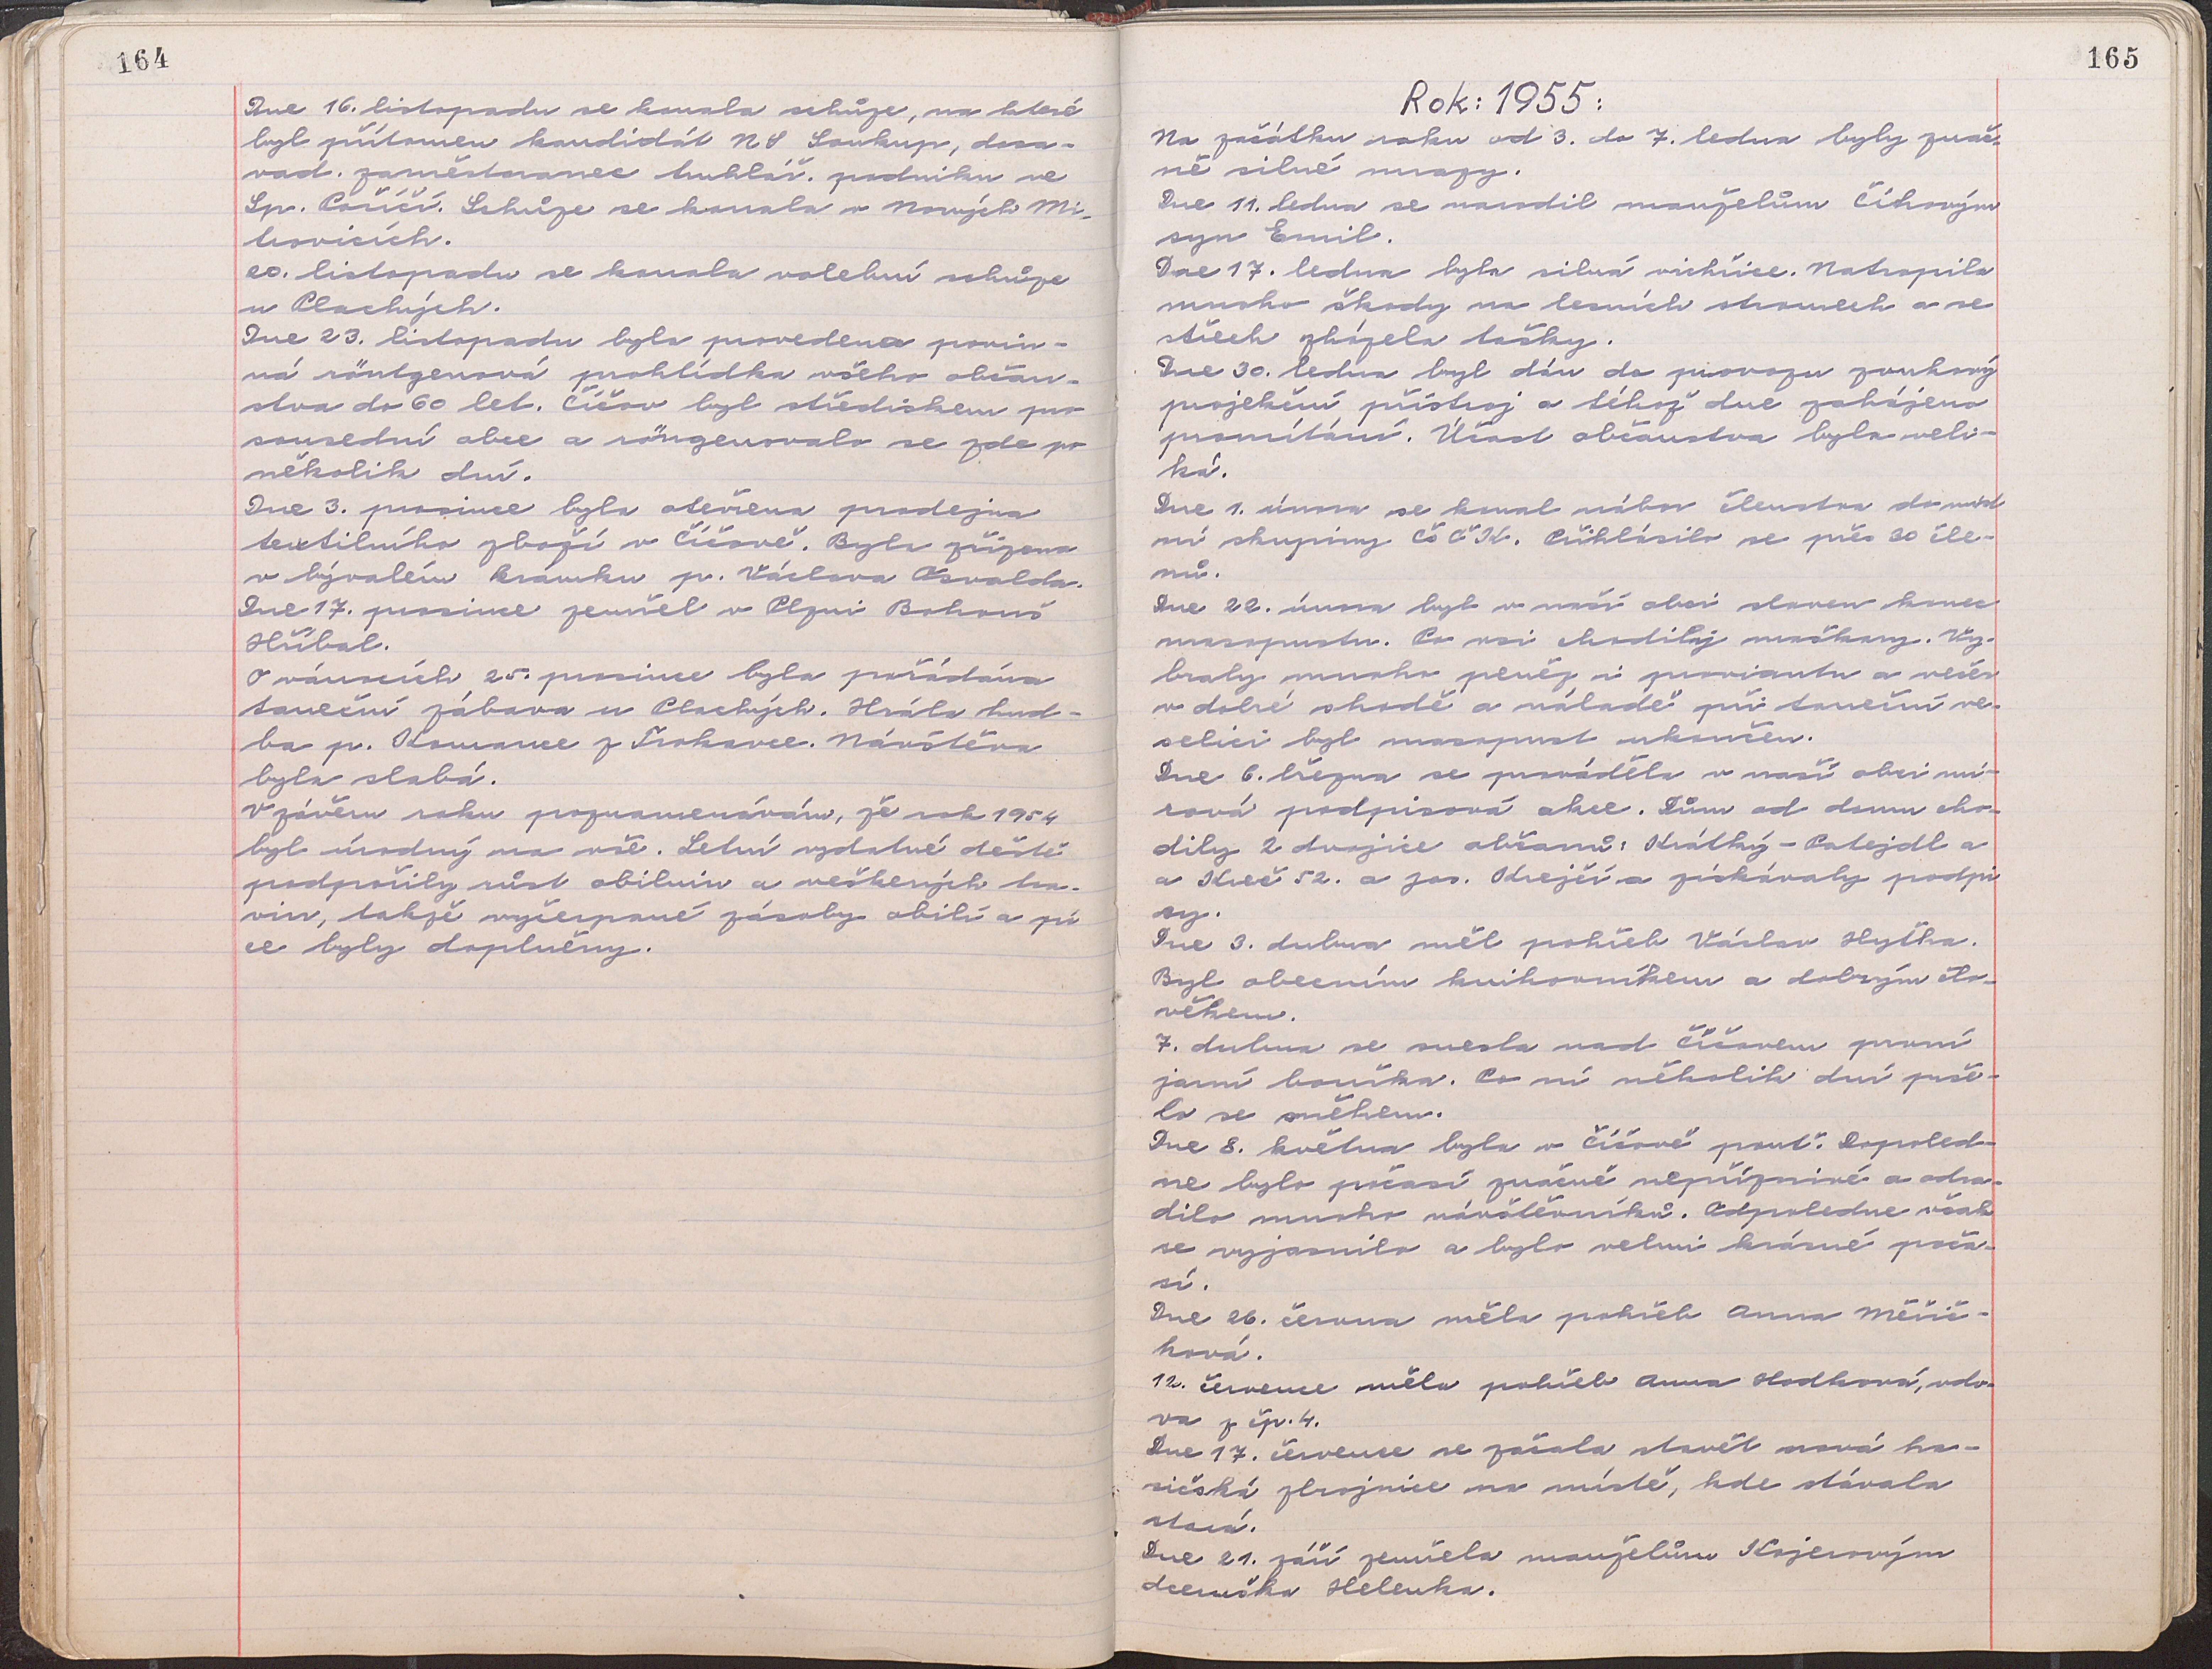 164
Dne 16. listopadu se konala schůze, na které
byl přítomen kandidát NS Soukup, dosa-
vad. zaměstnanec truhlář. podniku ve
Sp. Poříčí. Schůze se konala v Nových Mi-
trovicích.
20. listopadu se konala volební schůze
u Plachých.
Dne 23. listopadu byla provedena povin-
ná röntgenová prohlídka všeho občan-
stva do 60 let. Číčov byl střediskem pro
sousední obce a röngenovalo se zde po
několik dní.
Dne 3. prosince byla otevřena prodejna
textilního zboží v Číčově. Byla zřízena
v bývalém krámku p. Václava Osvalda.
Dne 17. prosince zemřel v Plzni Bohouš
Hříbal.
O vánocích 25. prosince byla pořádána
taneční zábava u Plachých. Hrála hud-
ba p. Komance z Trokavce. Návštěva
byla slabá.
V závěru roku poznamenávám, že rok 1954
byl úrodný na vše. Letní vydatné deště
podpořily růst obilnin a veškerých tra-
vin, takže vyčerpané zásoby obilí a pí
ce byly doplněny.
165
Rok: 1955:
Na začátku roku od 3. do 7. ledna byly znač-
ně silné mrazy.
Dne 11. ledna se narodil manželům Číhovým
syn Emil.
Dne 17. ledna byla silná vichřice. Natropila
mnoho škody na lesních stromech a se
střech zházela tašky.
Dne 30. ledna byl dán do provozu zvukový
projekční přístroj a téhož dne zahájeno
promítání. Účast občanstva byla veli-
ká.
Dne 1. února se konal nábor členstva do míst
ní skupiny Čs Č K. Přihlásilo se přes 30 čle-
nů.
Dne 22. února byl v naší obci slaven konec
masopustu. Po vsi chodily maškary. Vy-
braly mnoho peněz i proviantu a večer
v dobré shodě a náladě při taneční ve-
selici byl masopust ukončen.
Dne 6. března se prováděla v naší obci mí-
rová podpisová akce. Dům od domu cho-
dily 2 dvojice občanů: Krátký - Patejdl a
a Kreč 52. a Jos. Krejčí a získávaly podpi
sy.
Dne 3. dubna měl pohřeb Václav Hytha.
Byl obecním knihovníkem a dobrým člo-
věkem.
7. dubna se snesla nad Číčovem první
jarní bouřka. Po ní několik dní prše-
lo se sněhem.
Dne 8. května byla v Číčově pouť. Dopoled-
ne bylo počasí značně nepříznivé a odra-
dilo mnoho návštěvníků. Odpoledne však
se vyjasnilo a bylo velmi krásné poča-
sí.
Dne 26. června měla pohřeb Anna Měřič-
ková.
12. července měla pohřeb Anna Hodková, vdo-
va z čp. 4.
Dne 17. července se začala stavět nová ha-
sičská zbrojnice na místě, kde stávala
stará.
Dne 21. září zemřela manželům Kojerovým
dceruška Helenka.